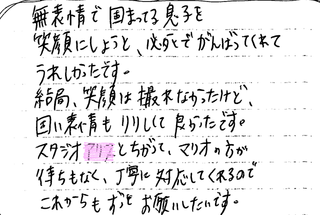 無表情で固まってる息子を
笑顔にしようと、必死でがんばってくれて
うれしかったです。
結局、笑顔は撮れなかったけど、
固い表情もりりしくて良かったです。
スタジオアリスとちがって、マリオの方が
待ちもなく、丁寧に対応してくれるので
これからもずっとお願いしたいです。